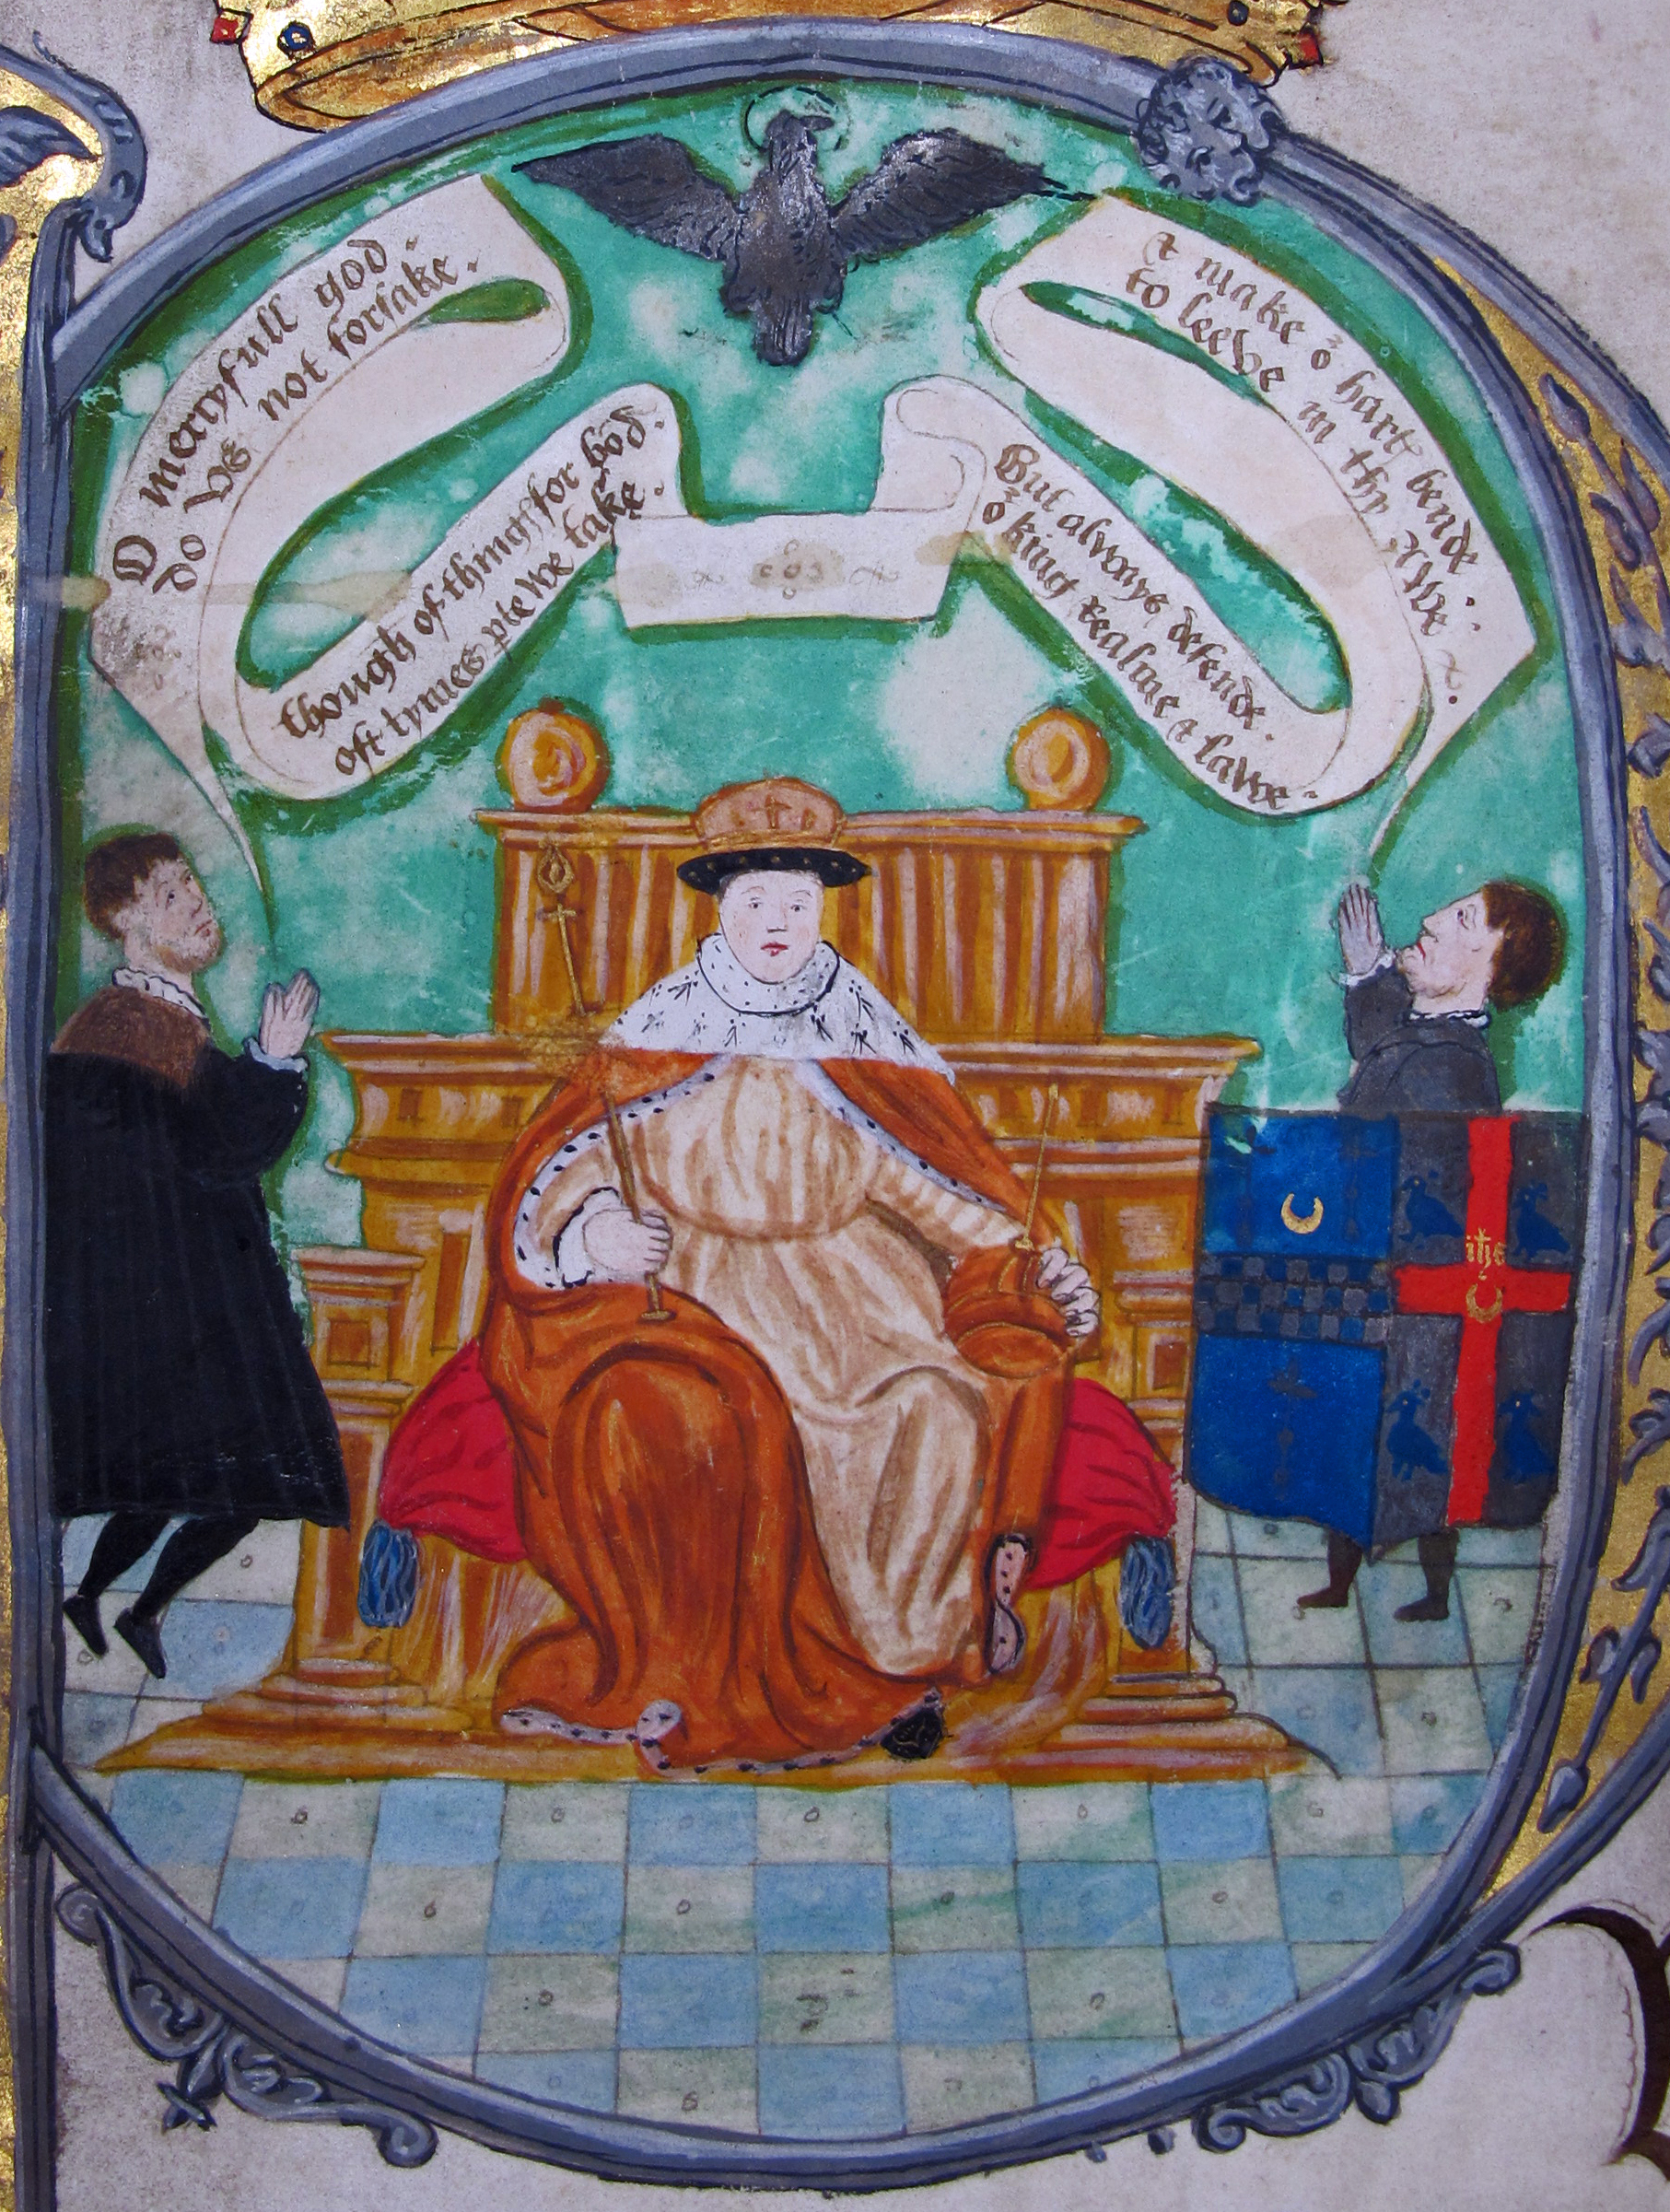 O mercyfull god
do vs not forsake.
though of things for bod.
oft tymes pie we take.
& make oʳ hart bende
to leebe in thy awe
But always defende.
oʳ king realme & lawe.
ihs